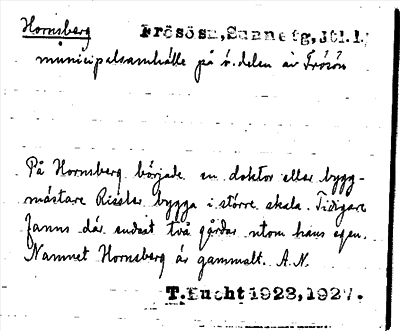 Hornsberg Frösö sn, Sunne tg, Jtl. l.
municipalsamhälle på ö. delen av Frösön
På Hornsberg började en doktor eller bygg-
mästare Rissler bygga i större skala. Tidigare
fanns där endast två gårdar utom hans egen.
Namnet Hornsberg är gammalt. A.N.
T. Bucht 1928, 1927.